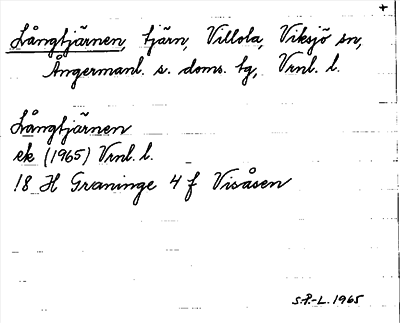 +
Långtjärnen, tjärn, Villola, Viksjö sn,
Ångermanl. s. doms. tg, Vrnl. l.
Långtjärnen
ek (1965) Vrnl. l.
18 H Graninge 4 f Visåsen
S.P.-L. 1965